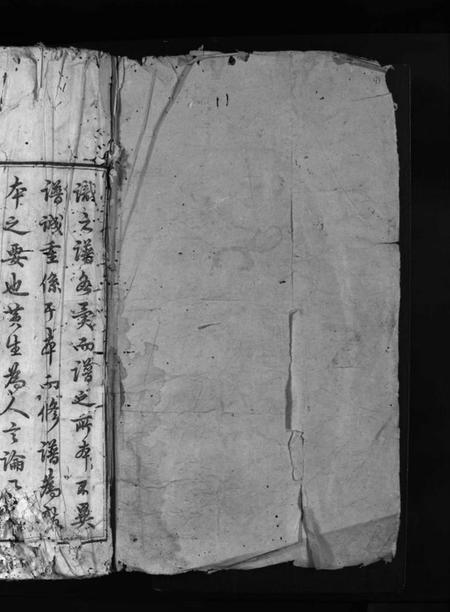 識之譜每異而譜之所本不異
譜誠重係于本而修譜為
本之要也其生為人之論